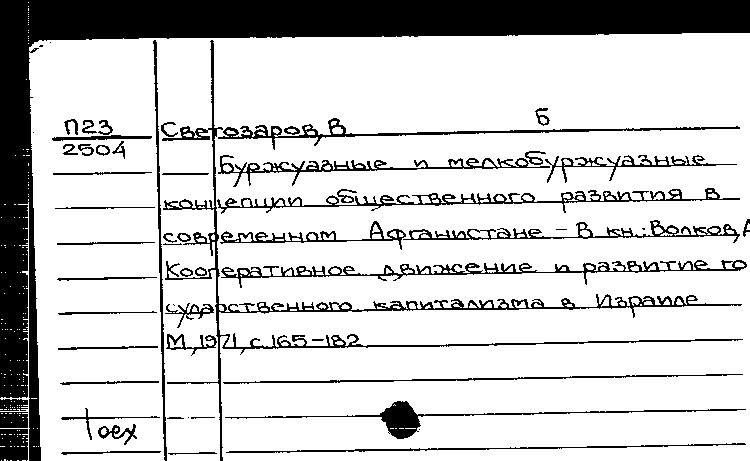 Б
П23 Светозаров, В
2504
Буржуазные и мелкобуржуазные
концепции общественного развития в
современном Афганистане – В кн.: Волков, А
Кооперативное движение и развитие го
сударственного капитализма в Израиле
М, 1971, с. 165–182